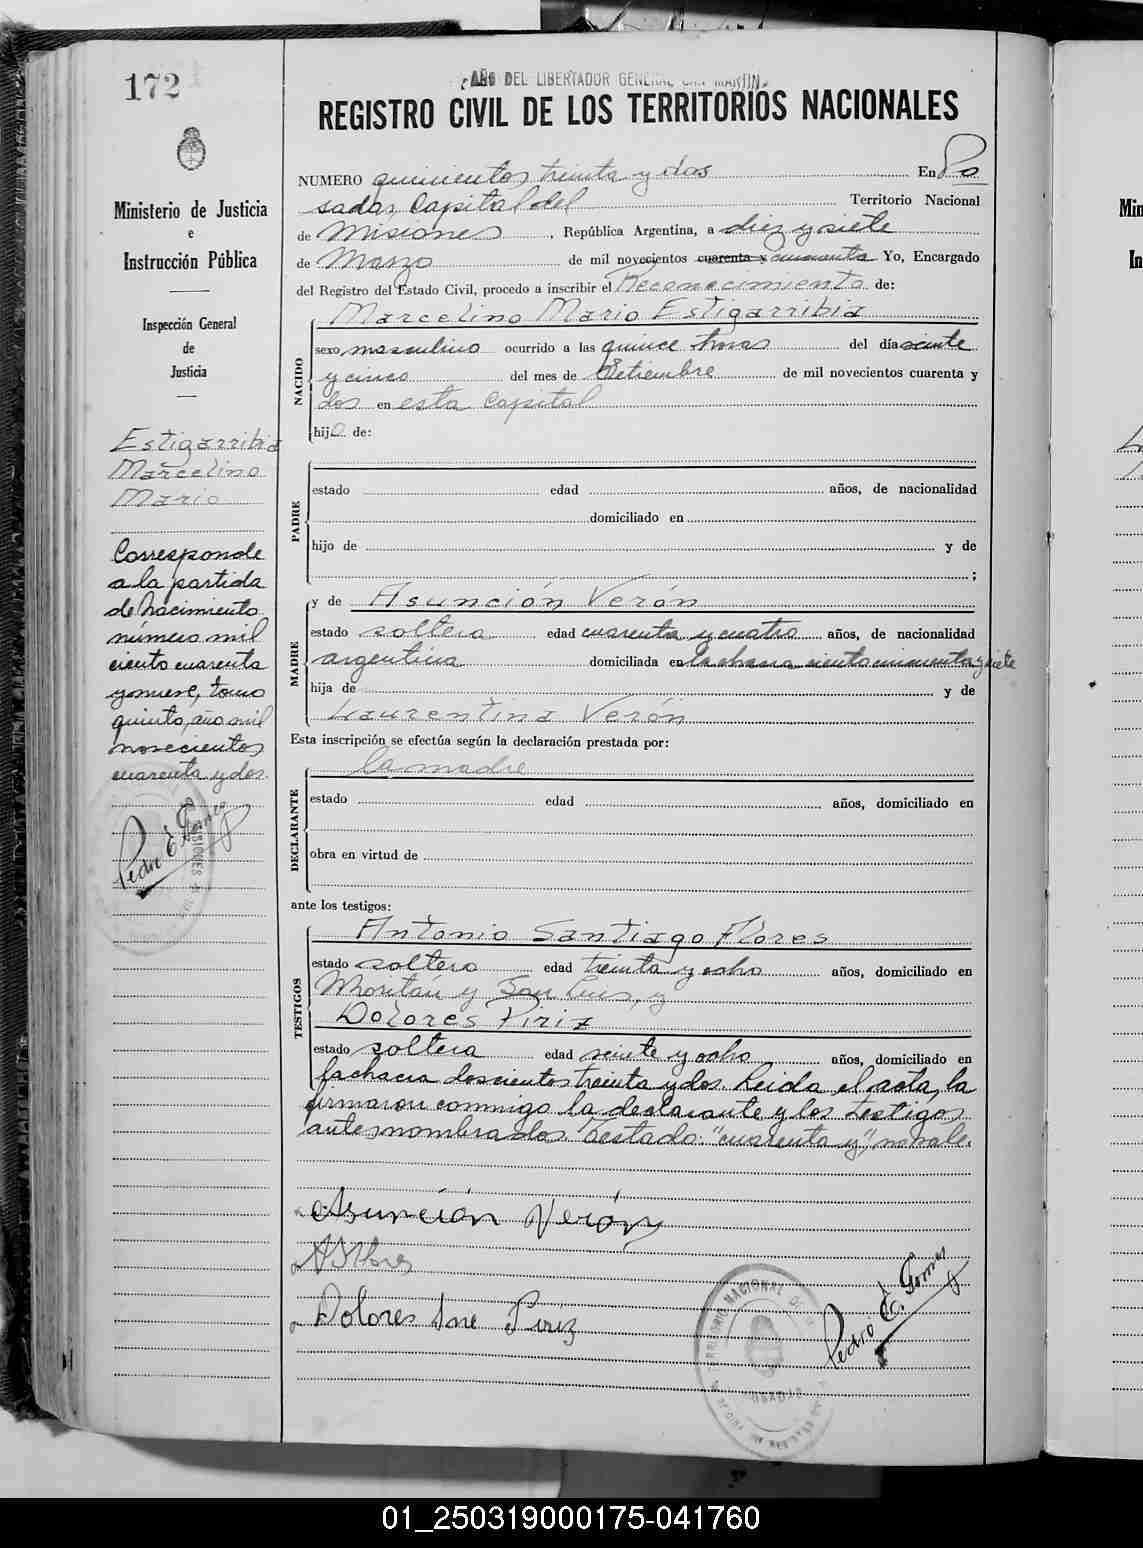 172
AÑO DEL LIBERTADOR GENERAL SAN MARTIN
REGISTRO CIVIL DE LOS TERRITORIOS NACIONALES
Ministerio de Justicia
e
Instrucción Pública
Inspección General
de
Justicia
Estigarribia
Marcelino
Mario
Corresponde
a la partida
de nacimiento
número mil
ciento cuarenta
y nueve, tomo
quinto, año mil
novecientos
cuarenta y dos.
Pedro E. Gomes
NUMERO quinientos treinta y dos En Po
sadas Capital del Territorio Nacional
de Misiones, República Argentina, a diez y siete
de Marzo de mil novecientos cuarenta y cincuenta Yo, Encargado
del Registro del Estado Civil, procedo a inscribir el Reconocimiento de:
NACIDO
Marcelino Mario Estigarribia
sexo masculino ocurrido a las quince horas del día veinte
y cinco del mes de Setiembre de mil novecientos cuarenta y
dos en esta Capital
hijo de:
PADRE
estado edad años, de nacionalidad
domiciliado en
hijo de y de
;
MADRE
y de Asunción Verón
estado soltera edad cuarenta y cuatro años, de nacionalidad
argentina domiciliada en la chacra ciento cincuenta y siete
hija de y de
Laurentina Verón
Esta inscripción se efectúa según la declaración prestada por:
DECLARANTE
la madre
estado edad años, domiciliado en
obra en virtud de
ante los testigos:
TESTIGOS
Antonio Santiago Flores
estado soltero edad treinta y ocho años, domiciliado en
y San Luis, y
Dolores Piriz
estado soltera edad veinte y ocho años, domiciliado en
la chacra doscientos treinta y dos. Leida el acta, la
firmaron conmigo la declarante y los testigos
antes nombrados. Testado: "cuarenta y", no vale.
Asunción Verón
ASFlores
Dolores Piriz
Pedro E. Gomes
TERRITORIO NACIONAL DE
POSADAS
01_250319000175-041760